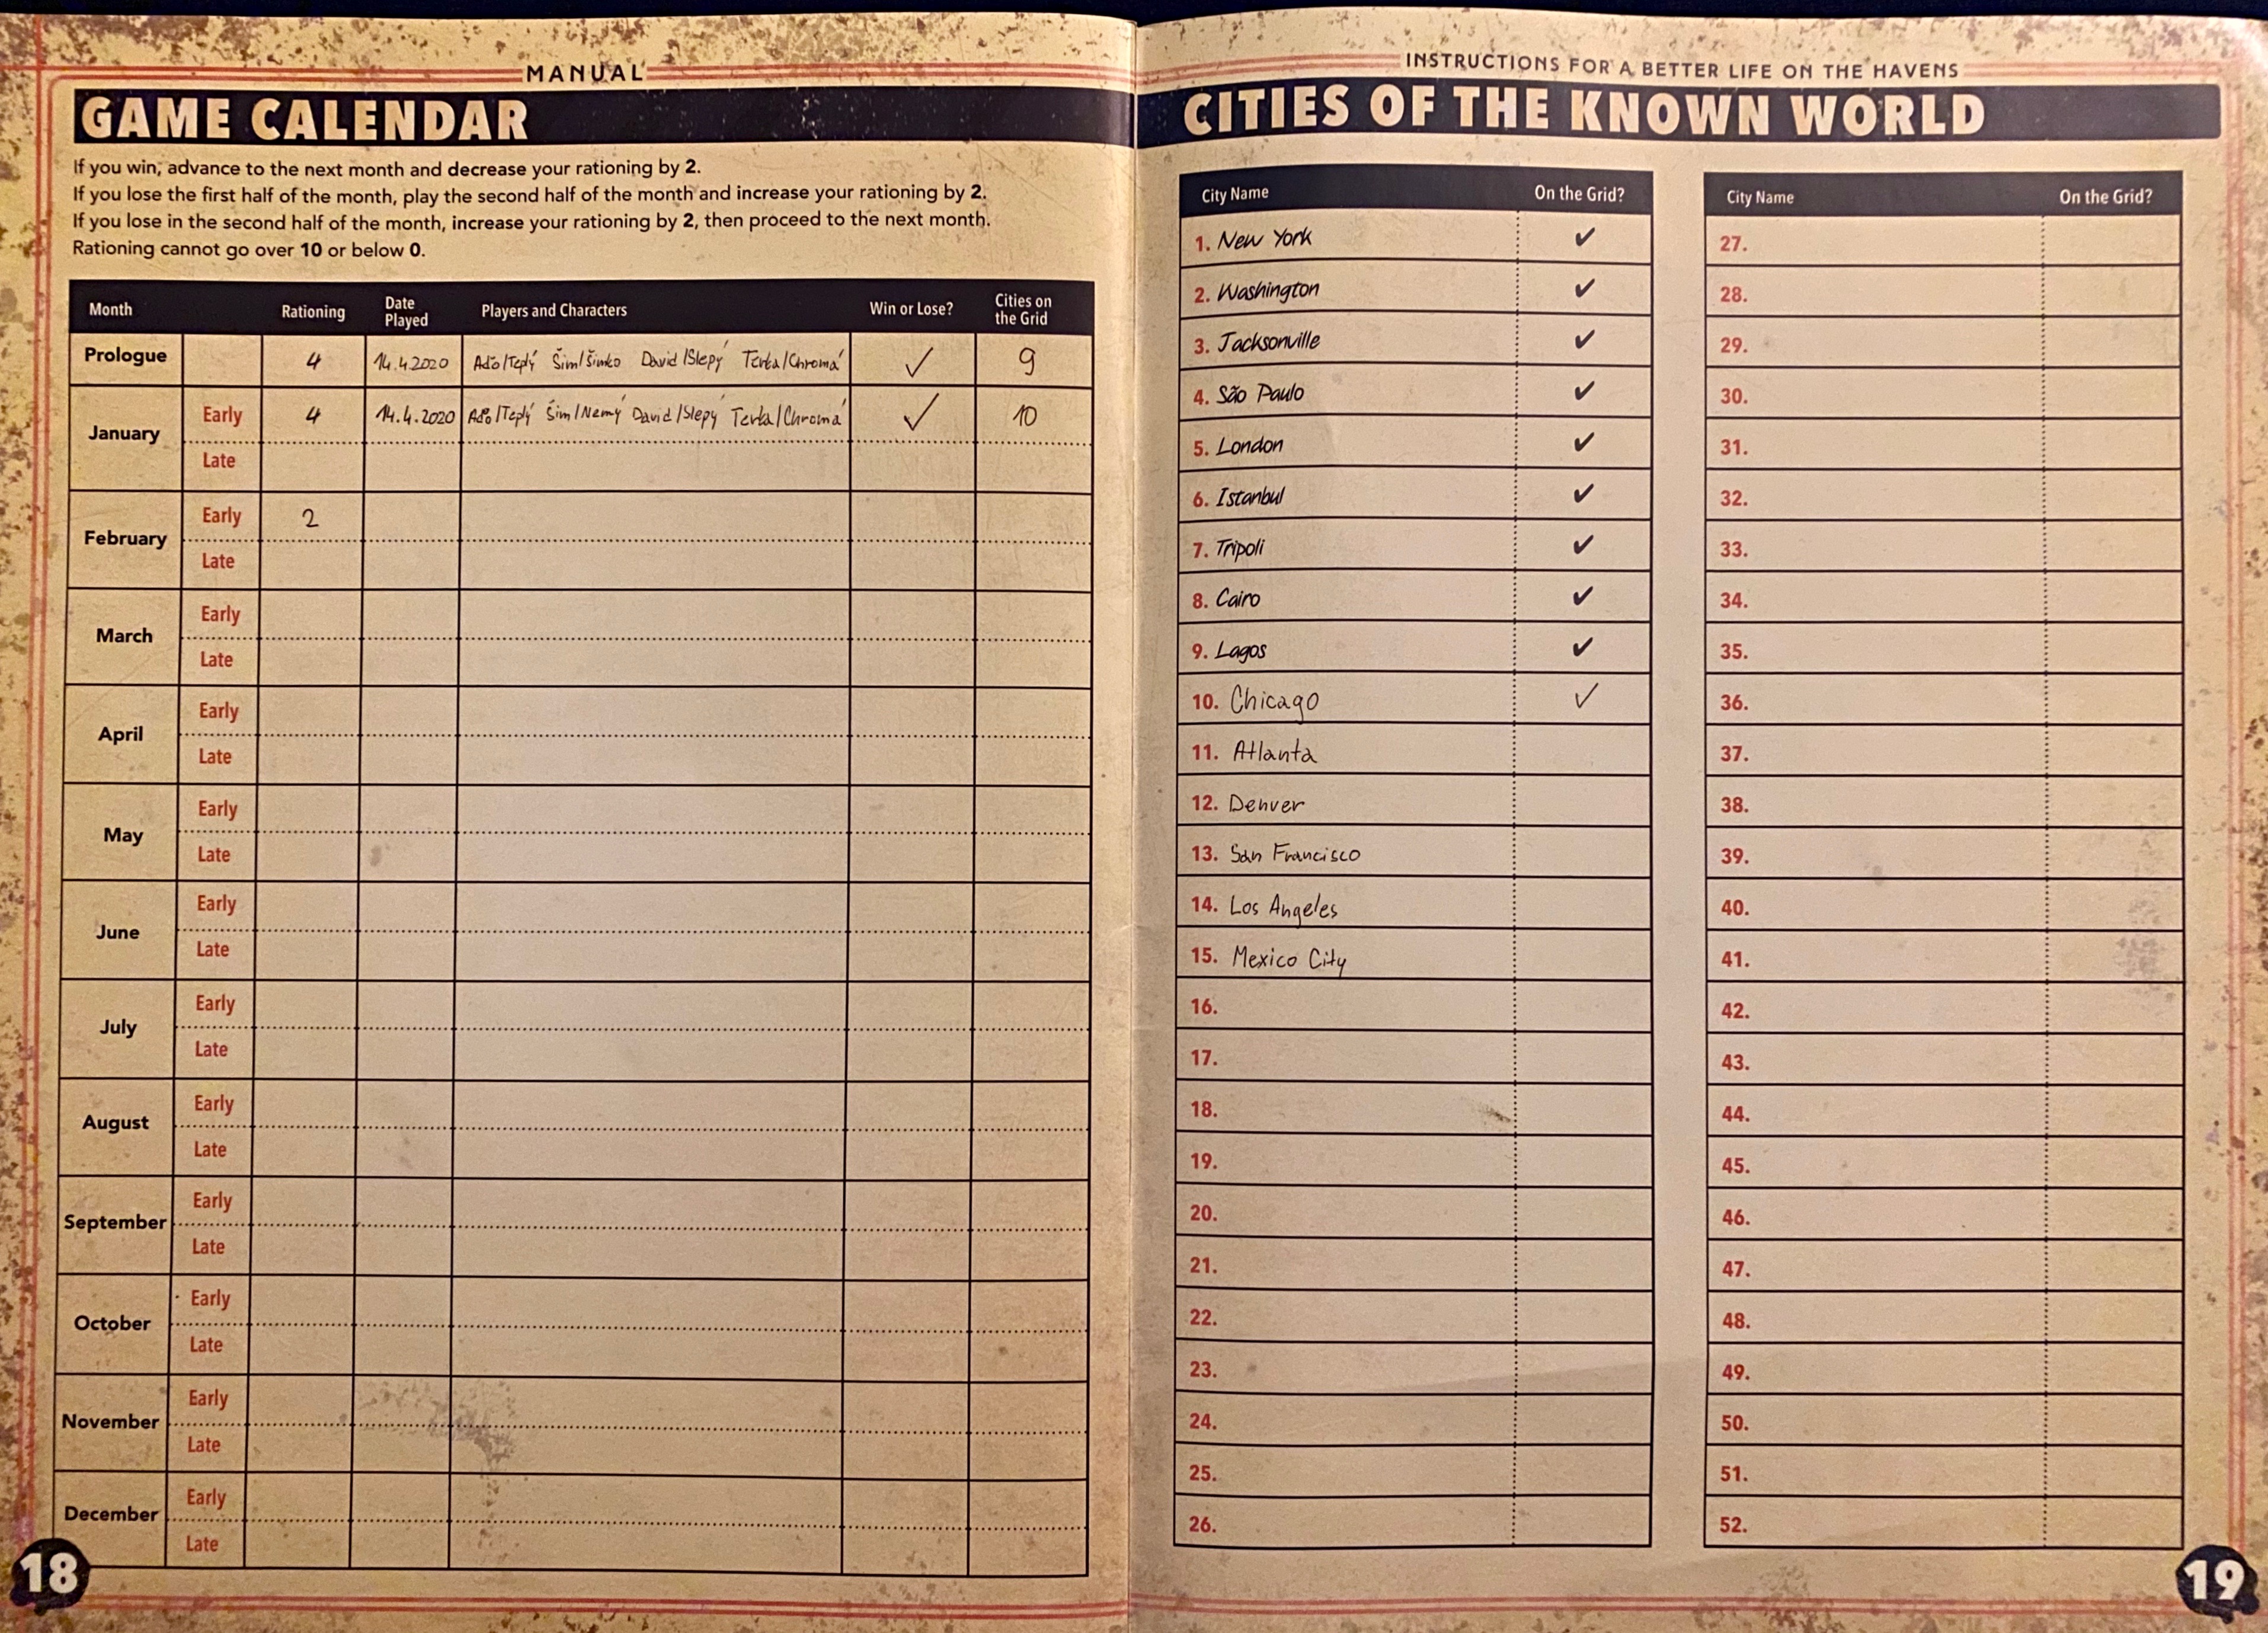 MANUAL
GAME CALENDAR
If you win, advance to the next month and decrease your rationing by 2.
If you lose the first half of the month, play the second half of the month and increase your rationing by 2.
If you lose in the second half of the month, increase your rationing by 2, then proceed to the next month.
Rationing cannot go over 10 or below 0.
Month Rationing Date Played Players and Characters Win or Lose? Cities on the Grid
Prologue 4 14.4.2020 Aďo/Teplý Šim/Šimko David/Slepý Terka/Chromá ✓ 9
January Early 4 14.4.2020 Aďo/Teplý Šim/Nemý David/Slepý Terka/Chromá ✓ 10
Late
February Early 2
Late
March Early
Late
April Early
Late
May Early
Late
June Early
Late
July Early
Late
August Early
Late
September Early
Late
October Early
Late
November Early
Late
December Early
Late
18
INSTRUCTIONS FOR A BETTER LIFE ON THE HAVENS
CITIES OF THE KNOWN WORLD
City Name On the Grid?
1. New York ✓
2. Washington ✓
3. Jacksonville ✓
4. São Paulo ✓
5. London ✓
6. Istanbul ✓
7. Tripoli ✓
8. Cairo ✓
9. Lagos ✓
10. Chicago ✓
11. Atlanta
12. Denver
13. San Francisco
14. Los Angeles
15. Mexico City
16.
17.
18.
19.
20.
21.
22.
23.
24.
25.
26.
City Name On the Grid?
27.
28.
29.
30.
31.
32.
33.
34.
35.
36.
37.
38.
39.
40.
41.
42.
43.
44.
45.
46.
47.
48.
49.
50.
51.
52.
19